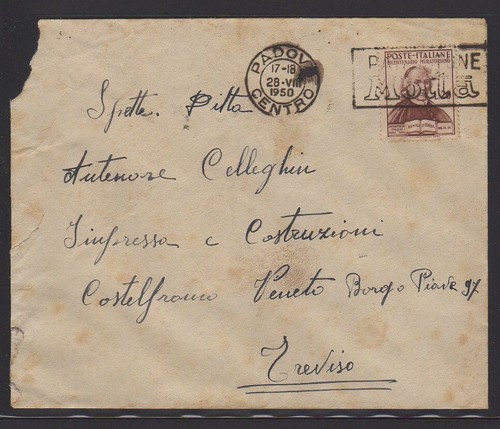 PADOVA
17-18
28·VIII
1950
CENTRO
POSTE·ITALIANE
BICENTENARIO MURATORIANO
NE
Motta
Spett. Ditta
Antenore Celleghin
Impressa e Costruzioni
Castelfranco Veneto Borgo Piave 97
Treviso